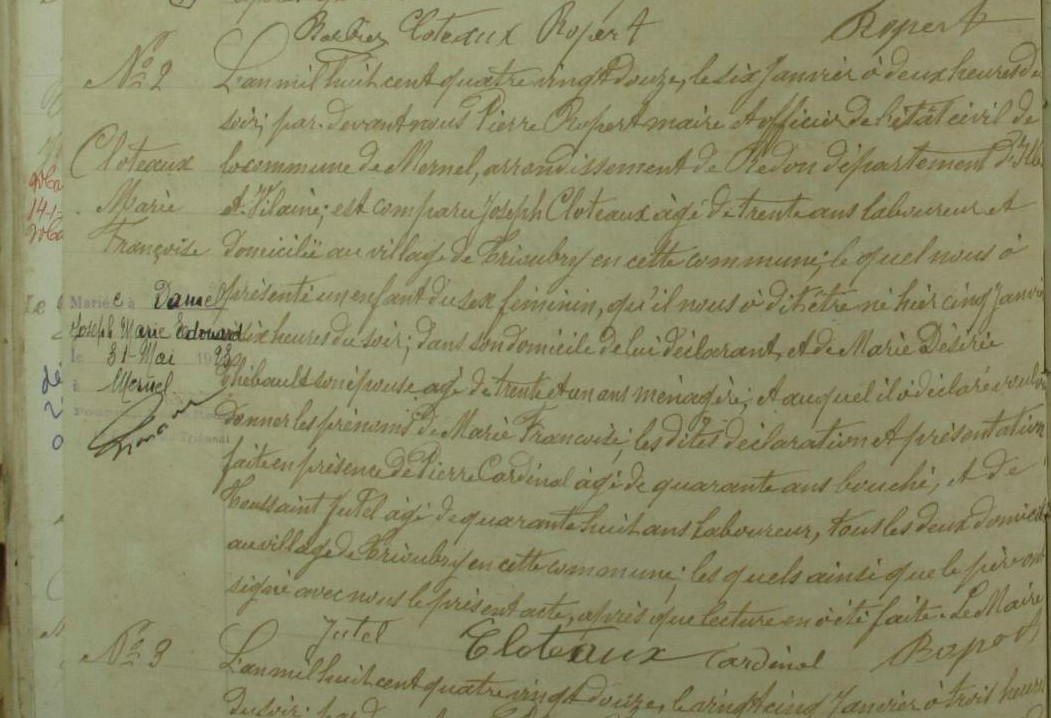 Barbier Cloteaux Ropert Ropert
N° 2
L'an mil huit cent quatre vingt douze, le six Janvier à deux heures du
soir, par-devant nous Pierre Ropert maire et officier de l'état civil de
Cloteaux
Marie
Françoise
la commune de Mernel, arrondissement de Redon département d'Ille
et Vilaine; est comparu Joseph Cloteaux âgé de trente ans laboureur et
domicilié au village de Trioubry en cette commune; le quel nous à
présenté un enfant du sex féminin, qu'il nous à dit être né hier cinq Janvier
à six heures du soir; dans son domicile de lui déclarant, et de Marie Désirée
Thébault son épouse agé de trente et un ans ménagère, et auquel il a déclaré vouloir
donner les prénoms de Marie Francoise; les dites déclaration et présentation
faite en présence de Pierre Cardinal agé de quarante ans bouché, et de
Toussaint Jutel agé de quarante huit ans laboureur, tous les deux domicilié
au village de Trioubry en cette commune; les quels ainsi que le père ont
signé avec nous le présent acte, après que lecture en à été faite. Le Maire
Mariée à Danie
Joseph Marie Edouard
le 31 Mai 1923
à Mernel
Jutel Cloteaux Cardinal Ropert
N° 3
L'an mil huit cent quatre vingt douze, le vingt cinq Janvier à trois heures
du soir; par d